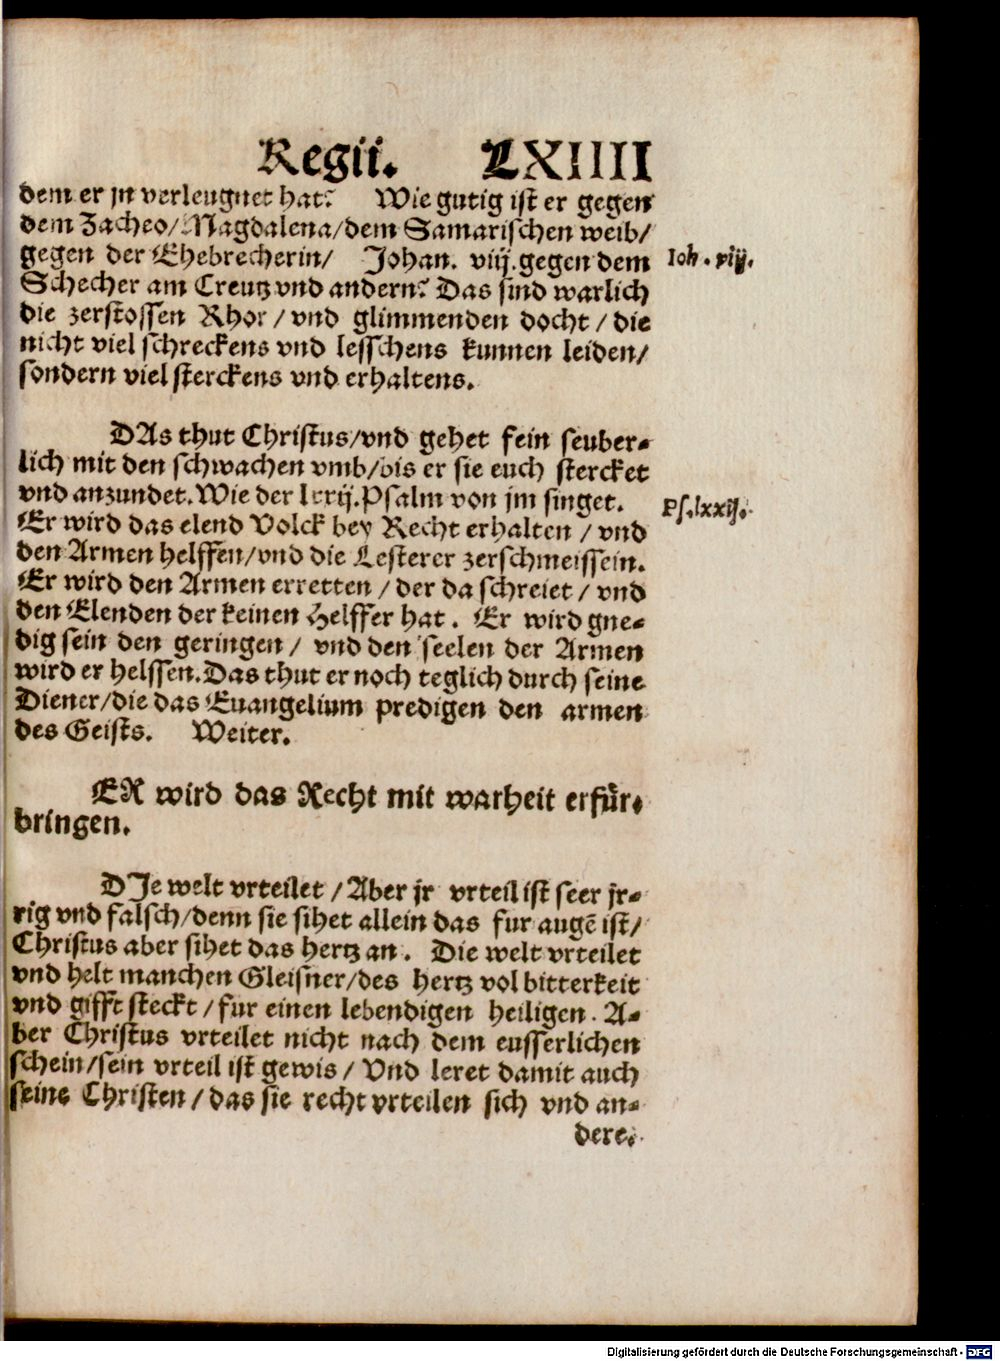 Regii. LXIIII
dem er jn verleugnet hat? Wie gutig ist er gegen
dem Zacheo/Magdalena/dem Samarischen weib/
gegen der Ehebrecherin/ Johan. viij.gegen dem
Schecher am Creutz vnd andern? Das sind warlich
die zerstossen Rhor/vnd glimmenden docht/die
nicht viel schreckens vnd lesschens kunnen leiden/
sondern viel sterckens vnd erhaltens.
Ioh. viij.
DAs thut Christus/vnd gehet fein seuber-
lich mit den schwachen vmb/bis er sie euch stercket
vnd anzundet.Wie der lxxij.Psalm von jm singet.
Er wird das elend Volck bey Recht erhalten/vnd
den Armen helffen/vnd die Lesterer zerschmeissein.
Er wird den Armen erretten/der da schreiet/vnd
den Elenden der keinen Helffer hat. Er wird gne-
dig sein den geringen/ vnd den seelen der Armen
wird er helssen.Das thut er noch teglich durch seine
Diener/die das Euangelium predigen den armen
des Geists. Weiter.
Ps.lxxij.
ER wird das Recht mit warheit erfür-
bringen.
DIe welt vrteilet/Aber jr vrteil ist seer jr-
rig vnd falsch/denn sie sihet allein das fur augē ist/
Christus aber sihet das hertz an. Die welt vrteilet
vnd helt manchen Gleisner/des hertz vol bitterkeit
vnd gifft steckt/fur einen lebendigen heiligen. A-
ber Christus vrteilet nicht nach dem eusserlichen
schein/sein vrteil ist gewis/ Vnd leret damit auch
seine Christen/das sie recht vrteilen sich vnd an-
dere.
Digitalisierung gefördert durch die Deutsche Forschungsgemeinschaft - DFG